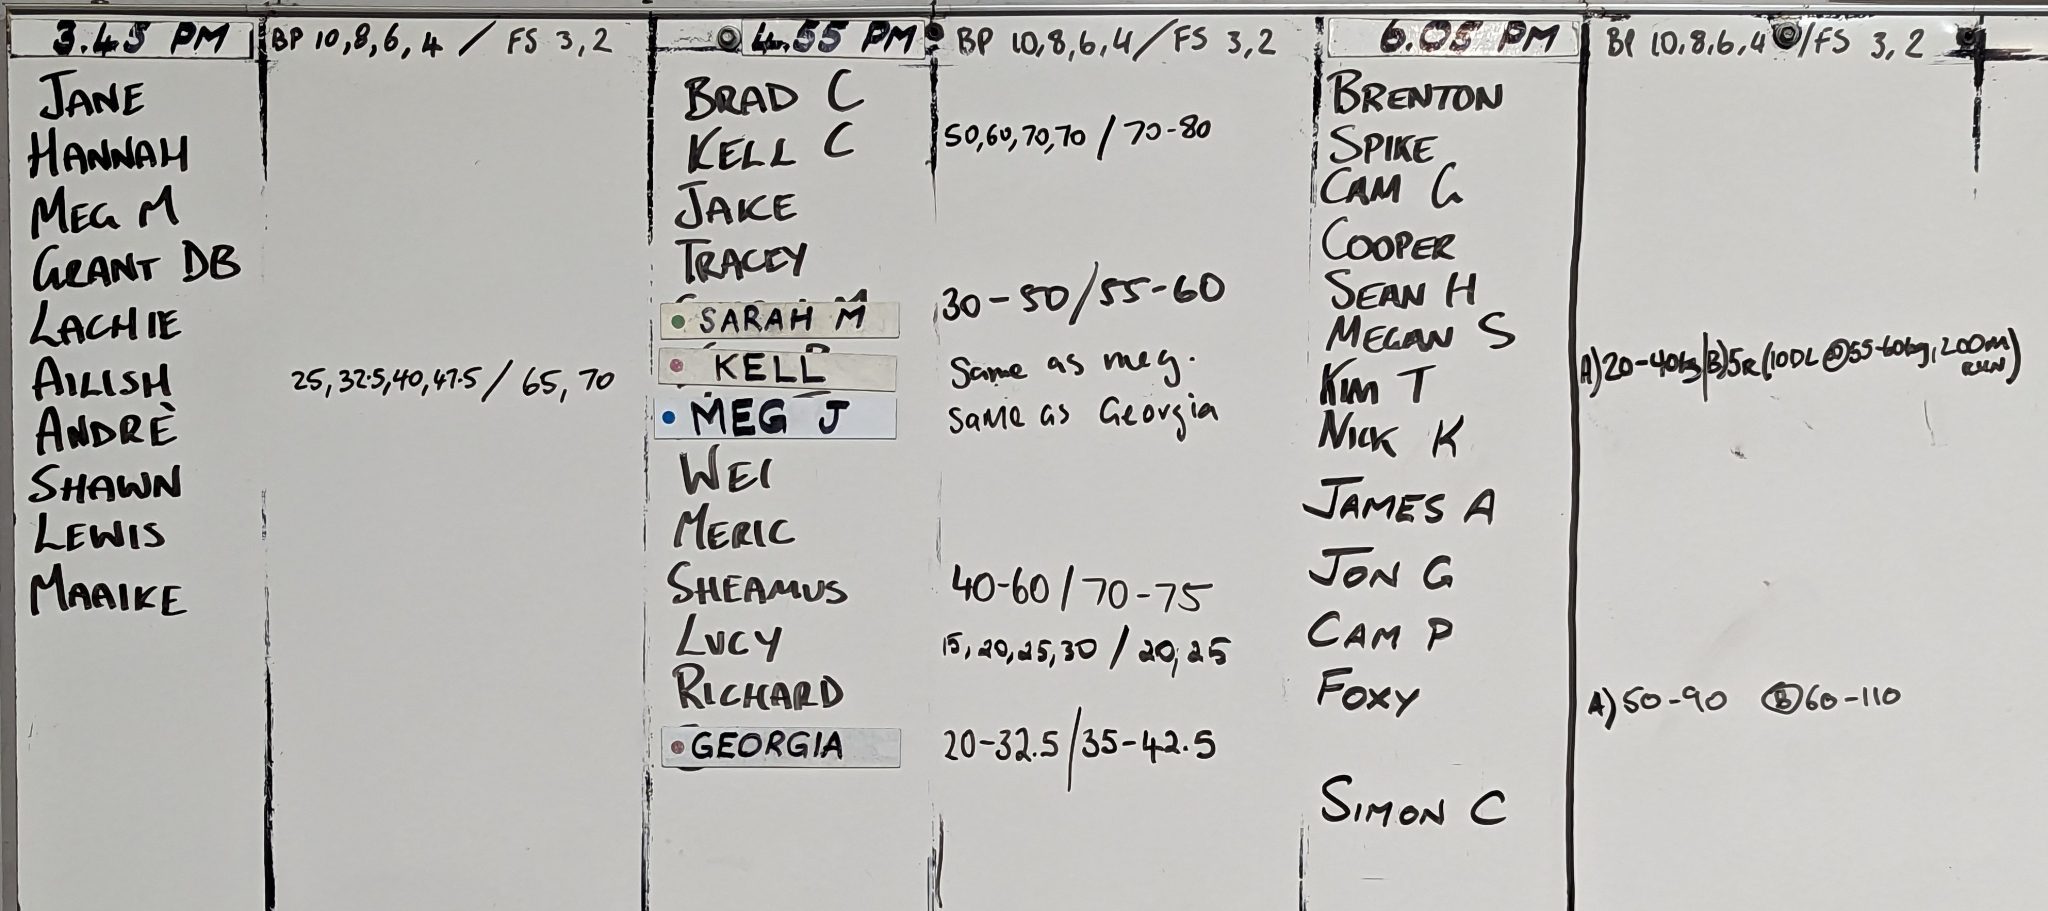 3.45 PM BP 10,8,6,4 / FS 3,2
JANE
HANNAH
MEG M
GRANT DB
LACHIE
AILISH 25, 32.5, 40, 47.5 / 65, 70
ANDRÈ
SHAWN
LEWIS
MAAIKE
4.55 PM BP 10,8,6,4/FS 3,2
BRAD C
KELL C 50,60,70,70 / 70-80
JAKE
TRACEY
SARAH M 30-50/55-60
KELL Same as meg.
MEG J Same as Georgia
WEI
MERIC
SHEAMUS 40-60 / 70-75
LUCY 15, 20, 25, 30 / 20, 25
RICHARD
GEORGIA 20-32.5/35-42.5
6.05 PM BP 10,8,6,4 /FS 3,2
BRENTON
SPIKE
CAM G
COOPER
SEAN H
MEGAN S
KIM T A) 20-40kg/B) 5R (10DL @ 55-60kg, 200m RUN)
NICK K
JAMES A
JON G
CAM P
FOXY A) 50-90 B) 60-110
SIMON C